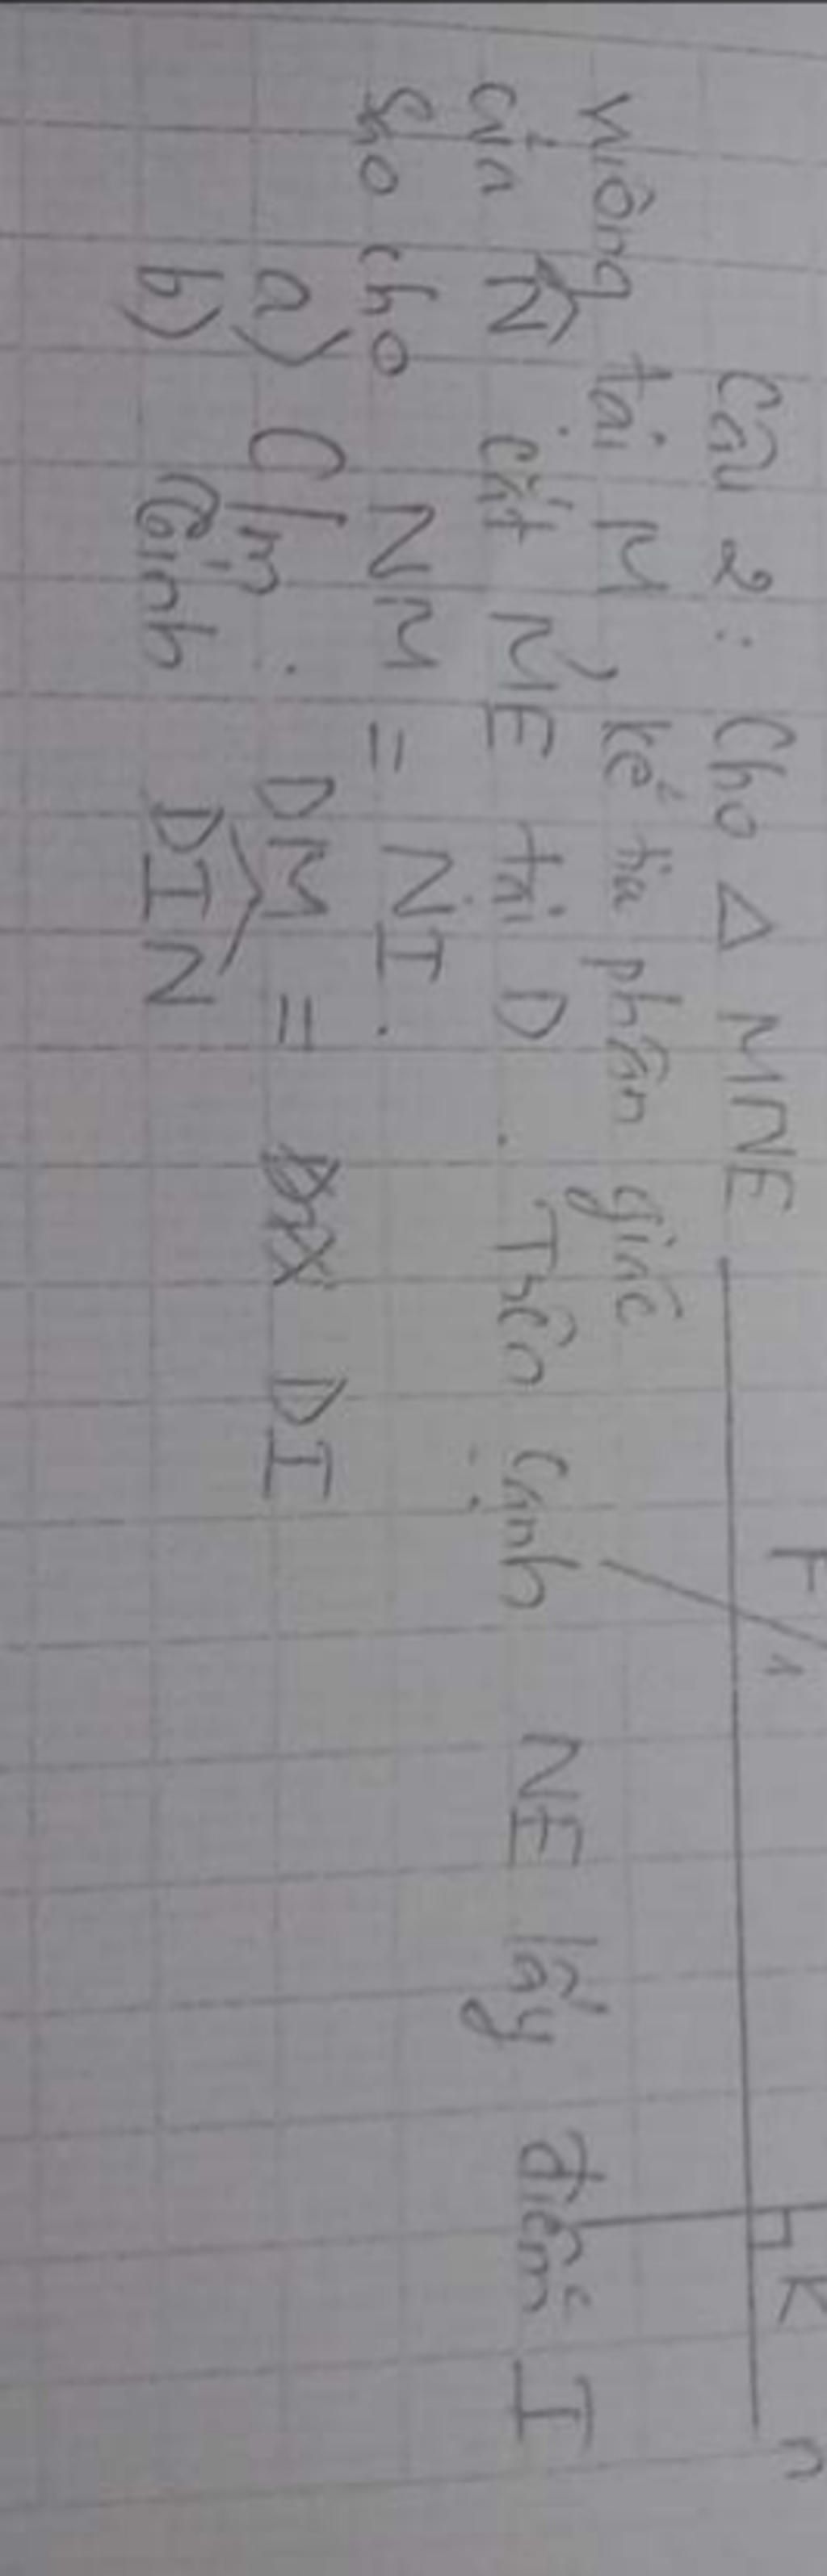 Câu 2: Cho Δ MNE
vuông tại M, kẻ tia phân giác
của N̂ cắt ME tại D. Trên cạnh NE lấy điểm I
sao cho NM = NI.
a) C/m: DM = DI
b) Tính DIN
F
1
K
n